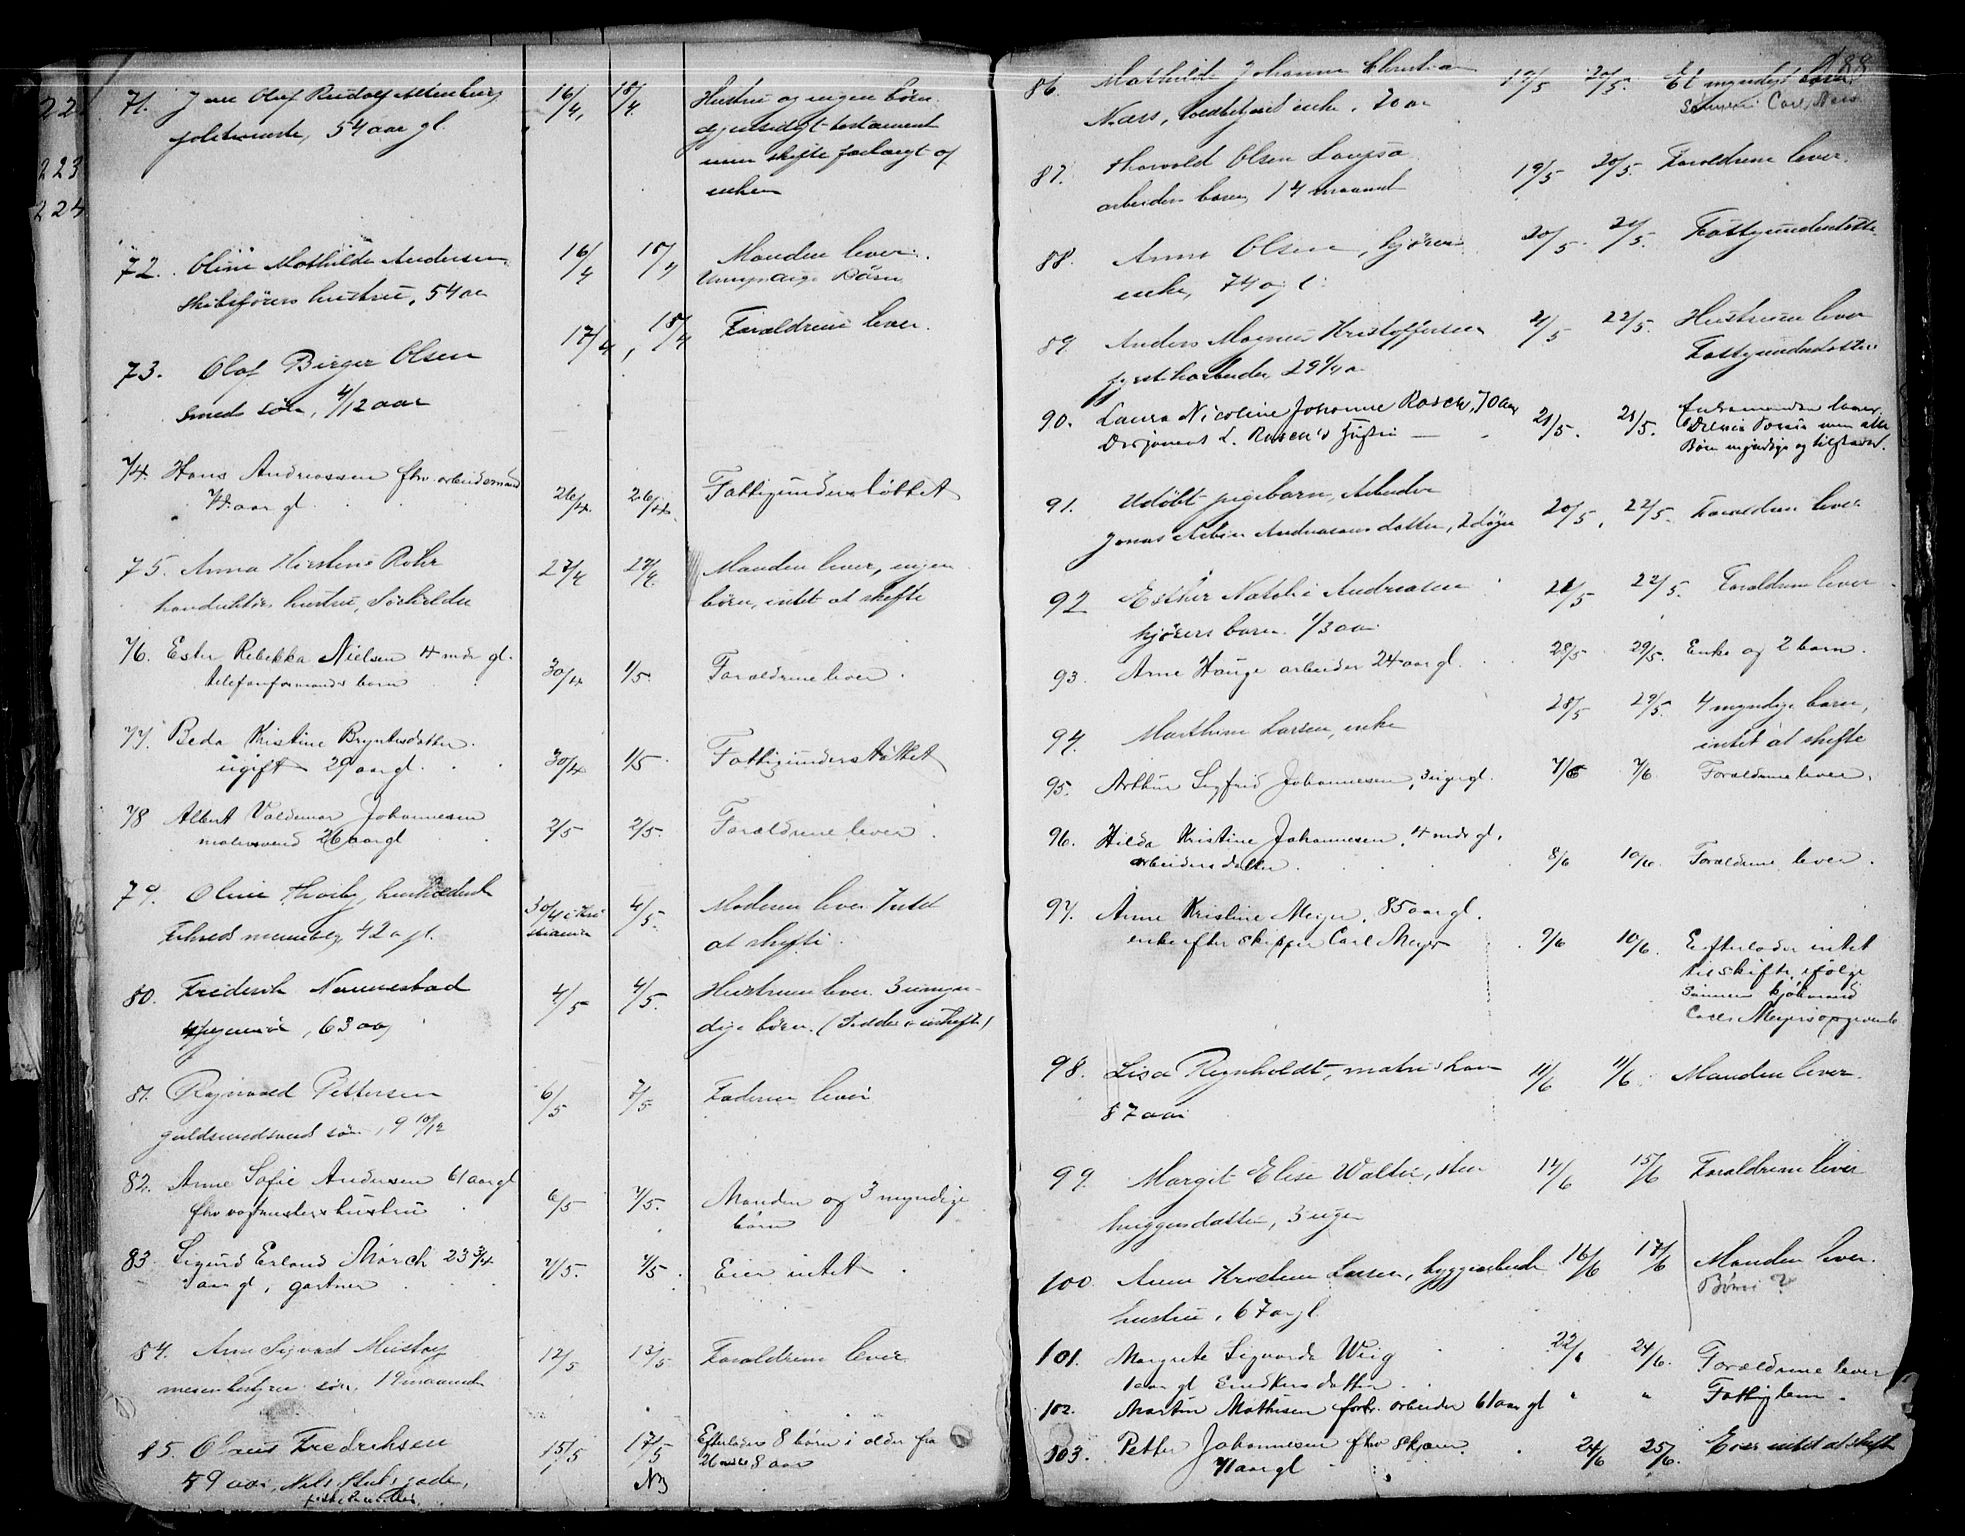 222
223
224
71. Jens Olaf Rudolf Altenburg 16/4 18/4 Hustru og ingen børn.
54 aar gl. gjensidigt testament
skifte forlangt af
enken
72. Oline Mathilde Andersen, 16/4 18/4 Manden lever.
skibsførers hustru, 54 aar Umyndige Børn
73. Olaf Birger Olsen 17/4 18/4 Forældrene lever.
smeds søn, 4/12 aar
74. Hans Andreassen fhv. arbeidsmand 26/4 26/4 Fattigunderstøttet
aar gl.
75. Anna Kirstine Rohr 27/4 27/4 Manden lever, ingen
konduktørs hustru, børn, intet at skifte
76. Ester Rebekka Nielsen 4 mdr gl. 30/4 1/5. Forældrene lever.
telefonformands barn
77. Beda Kristine Bryntesdatter. 30/4 1/5. Fattigunderstøttet
ugift 29 aar gl.
78 Albert Valdemar Johannesen 2/5 2/5. Forældrene lever.
malersvend 26 aar gl
79. Oline Thorby, 30/4 i Kri 4/5. Moderen lever. Intet
42 a gl. stiania at skifte.
80. Frederik Nannestad 4/5 4/5. Hustruen lever. 3 umyn-
63 aar dige børn. (Sidder i uskifte)
81. Ragnvald Pettersen 6/5 7/5 Faderen lever
guldsmedsvends søn, 9 10/12
82. Anne Sofie Andersen 61 aar gl 6/5 7/5. Manden og 3 myndige
fhv vagtmesters hustru børn
83. Sigurd Erland Mørch 23 3/4 7/5. 7/5. Eier intet.
aar gl, gartner
84. Arne Sigvart 12/5 13/5 Forældrene lever
søn, 19 maaneder
85. Olaus Fredriksen 15/5 17/5 Efterlader 8 børn i alder fra
59 aar, Nels gaden, N3 26 8 aar
188
86. Mathilde Johanne Christiane 19/5 20/5. Et myndigt barn
Næss, enke, 70 aar Sønnen Carl Næss
87. Thorvald Olsen 19/5 20/5 Forældrene lever.
arbeiders barn, 14 maaneder
88. Anna Olsen, kjørers 20/5. 21/5. Fattigunderstøtte
enke, 74 a gl.
89. Anders Magnus Kristoffersen 21/5 22/5. Hustruen lever
arbeider, 29 1/4 a Fattigunderstøttes
90. Laura Nicoline Johanne Rasch, 70 aar 21/5. 21/5. lever.
L. Rasch's Hustru Børn myndige og tilstede.
91. Udøbt pigebarn, Arbeider 20/5, 22/5. Forældrene lever
Jonas Andreasens datter, 2 døgn
92 Esther Natalie Andreasen 21/5 22/5. Forældrene lever.
kjørers barn. 1/3 aar
93. Arne Hauge arbeider 24 aar gl. 28/5 29/5. Enke og 2 barn.
94. Marthine Larsen, enke 28/5 29/5. 4 myndige barn,
intet at skifte
95. Arthur Sigfrid Johannesen, 3 uger gl. 7/6 7/6 Forældrene lever.
96. Hilda Kristine Johannesen, 4 mdr gl. 8/6 10/6. Forældrene lever.
arbeiders datter.
97. Anne Kristine Meyer, 85 aar gl. 9/6 10/6. Efterlader intet
enke efter skipper Carl Meyer til skifte, ifølge
sønnen
Carl Meyers opgivende
98. Lisa Reynholdt, 11/6 11/6. Manden lever.
87 aar
99. Margit Elise Walter, sten 14/6 15/6 Forældrene lever
huggers datter, 3 uger
100. Anne Kristine Larsen, byggarbeider 16/6 17/6 Manden lever.
hustru, 67 aar gl. Børn ?
101. Margrete Sigvarda Wiig 22/6 24/6. Forældrene lever
1 aar gl. datter.
102. Martin Mathisen forhv. arbeider 61 aar gl " " Fattiglem.
103. Petter Johannesen fhv. 24/6 25/6. Eier intet at skifte
71 aar gl